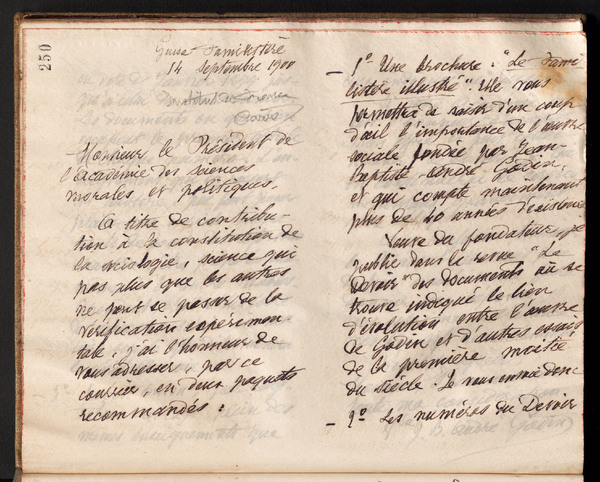 250
Guise Familistère
14 Septembre 1900
Institut de France
Paris
Monsieur le Président de
l'Académie des sciences
morales et politiques,
A titre de contribu-
tion à la constitution de
la sociologie, science qui
pas plus que les autres
ne peut se passer de la
vérification expérimen-
tale, j'ai l'honneur de
vous adresser, par ce
courrier, en deux paquets
recommandés :
- 1º Une brochure : "Le Fami-
listère illustré". Elle vous
permettra de saisir d'un coup
d'œil l'importance de l'œuvre
sociale fondée par Jean-
Baptiste-André Godin,
et qui compte maintenant
plus de 40 années d'existence
Veuve du fondateur, je
publie dans la revue "Le
Devoir" des documents où se
trouve indiqué le lien
d'évolution entre l'œuvre
de Godin et d'autres essais
de la première moitié
du siècle. Je vous envoie donc
- 2º Les numéros du Devoir